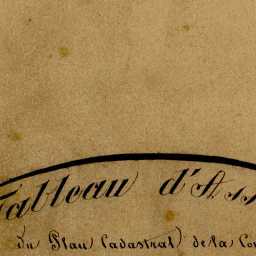 Tableau d'Ass
du Plan Cadastral de la Co